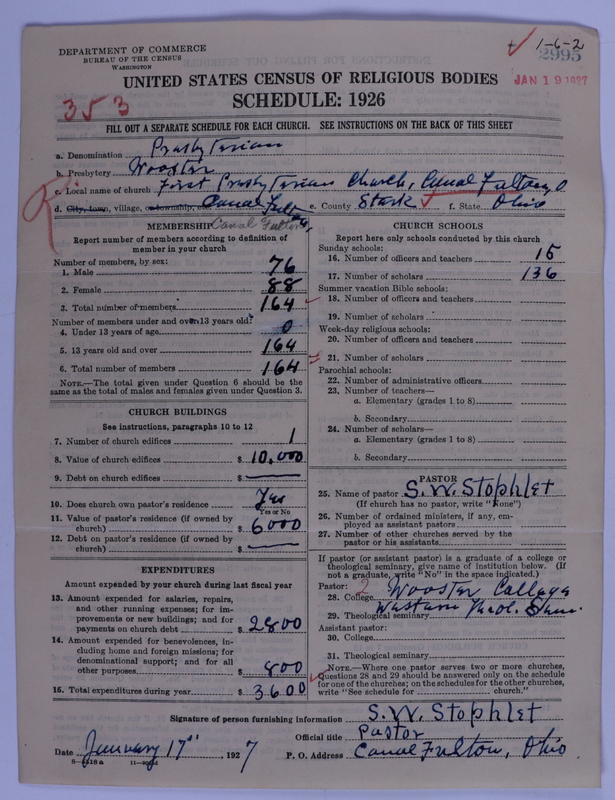 DEPARTMENT OF COMMERCE
BUREAU OF THE CENSUS
WASHINGTON
1-6-2
2995
JAN 19 1927
353
UNITED STATES CENSUS OF RELIGIOUS BODIES
SCHEDULE: 1926
FILL OUT A SEPARATE SCHEDULE FOR EACH CHURCH. SEE INSTRUCTIONS ON THE BACK OF THIS SHEET
a. Denomination Presbyterian
b. Presbytery Wooster
c. Local name of church First Presbyterian Church, Canal Fulton, O
d. City, town, village, or township, etc. Canal Fulton e. County Stark f. State Ohio
Canal Fulton
MEMBERSHIP
Report number of members according to definition of member in your church
Number of members, by sex:
1. Male 76
2. Female 88
3. Total number of members 164
Number of members under and over 13 years old:
4. Under 13 years of age 0
5. 13 years old and over 164
6. Total number of members 164
NOTE.—The total given under Question 6 should be the same as the total of males and females given under Question 3.
CHURCH BUILDINGS
See instructions, paragraphs 10 to 12
7. Number of church edifices 1
8. Value of church edifices $ 10,000
9. Debt on church edifices $ —
10. Does church own pastor's residence Yes
Yes or No
11. Value of pastor's residence (if owned by church) $ 6000
12. Debt on pastor's residence (if owned by church) $ —
EXPENDITURES
Amount expended by your church during last fiscal year
13. Amount expended for salaries, repairs, and other running expenses; for improvements or new buildings; and for payments on church debt $ 2800
14. Amount expended for benevolences, including home and foreign missions; for denominational support; and for all other purposes $ 800
15. Total expenditures during year $ 3600
CHURCH SCHOOLS
Report here only schools conducted by this church
Sunday schools:
16. Number of officers and teachers 15
17. Number of scholars 136
Summer vacation Bible schools:
18. Number of officers and teachers
19. Number of scholars
Week-day religious schools:
20. Number of officers and teachers
21. Number of scholars
Parochial schools:
22. Number of administrative officers
23. Number of teachers—
a. Elementary (grades 1 to 8)
b. Secondary
24. Number of scholars—
a. Elementary (grades 1 to 8)
b. Secondary
PASTOR
25. Name of pastor S. W. Stophlet
(If church has no pastor, write "None")
26. Number of ordained ministers, if any, employed as assistant pastors
27. Number of other churches served by the pastor or his assistants
If pastor (or assistant pastor) is a graduate of a college or theological seminary, give name of institution below. (If not a graduate, write "No" in the space indicated.)
Pastor:
28. College 2 Wooster College
29. Theological seminary Western Theol. Sem.
Assistant pastor:
30. College
31. Theological seminary
NOTE.—Where one pastor serves two or more churches, Questions 28 and 29 should be answered only on the schedule for one of the churches; on the schedules for the other churches, write "See schedule for church."
Signature of person furnishing information S. W. Stophlet
Official title Pastor
Date January 17" 1927 P. O. Address Canal Fulton, Ohio